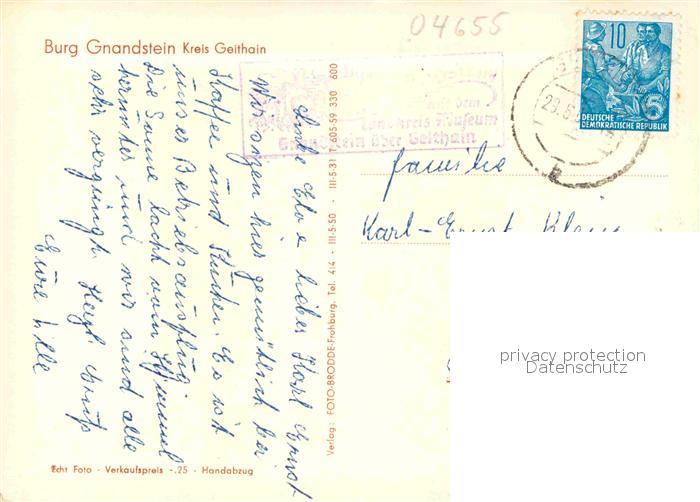 04655
Burg Gnandstein Kreis Geithain
10
DEUTSCHE
DEMOKRATISCHE REPUBLIK
5
29.6.
mit dem
Landkreis Museum
Gnandstein über Geithain
Familie
Karl-Ernst Klein
Liebe Elv e liebes Karl Ernst
Wir sitzen hier gemütlich bei
Kaffee und Kuchen. Es ist
unser Betriebsausflug
Die Sonne lacht vom Himmel
herunter und wir sind alle
sehr vergnügt. Herzl. Gruß
Eure Lilli
Verlag: FOTO-BRODDE-Frohburg, Tel. 414 - III-5-50 - III-5-31 T 605-59 330 600
Echt Foto - Verkaufspreis -.25 - Handabzug
privacy protection
Datenschutz